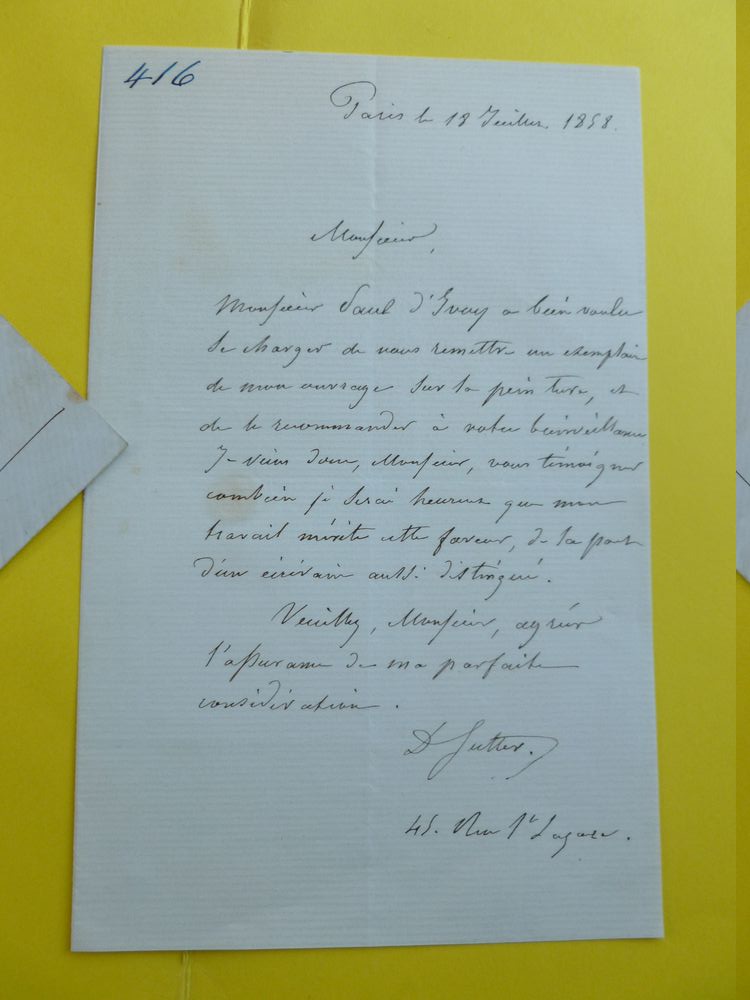 416
Paris le 18 Juillet 1858.
Monsieur,
Monsieur Paul d'Ivoy a bien voulu
se charger de vous remettre un exemplaire
de mon ouvrage sur la peinture, et
de le recommander à votre bienveillance
Je viens donc, Monsieur, vous témoigner
combien je serai heureux que mon
travail mérite cette faveur, de la part
d'un écrivain aussi distingué.
Veuillez, Monsieur, agréer
l'assurance de ma parfaite
considération.
D Sutter.
45. Rue St Lazare.